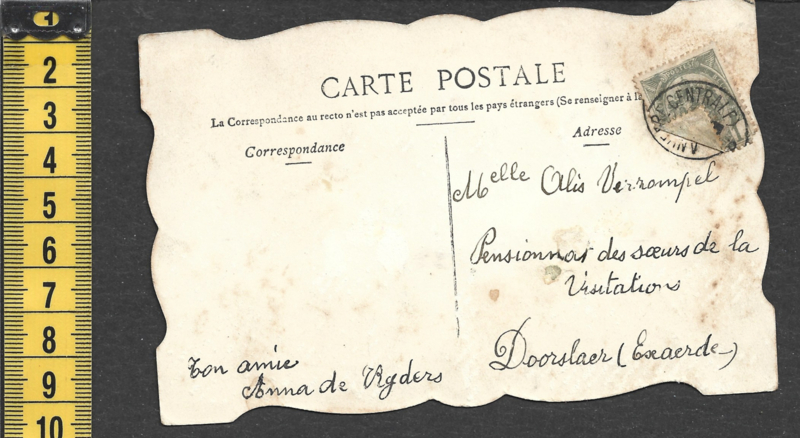 1
2
3
4
5
6
7
8
9
10
CARTE POSTALE
La Correspondance au recto n'est pas acceptée par tous les pays étrangers (Se renseigner à la
Correspondance
Adresse
CENTRAL
Melle Alis Verrompel
Pensionnat des sœurs de la
Visitations
Doorslaer (Exaerde)
Ton amie
Anna de